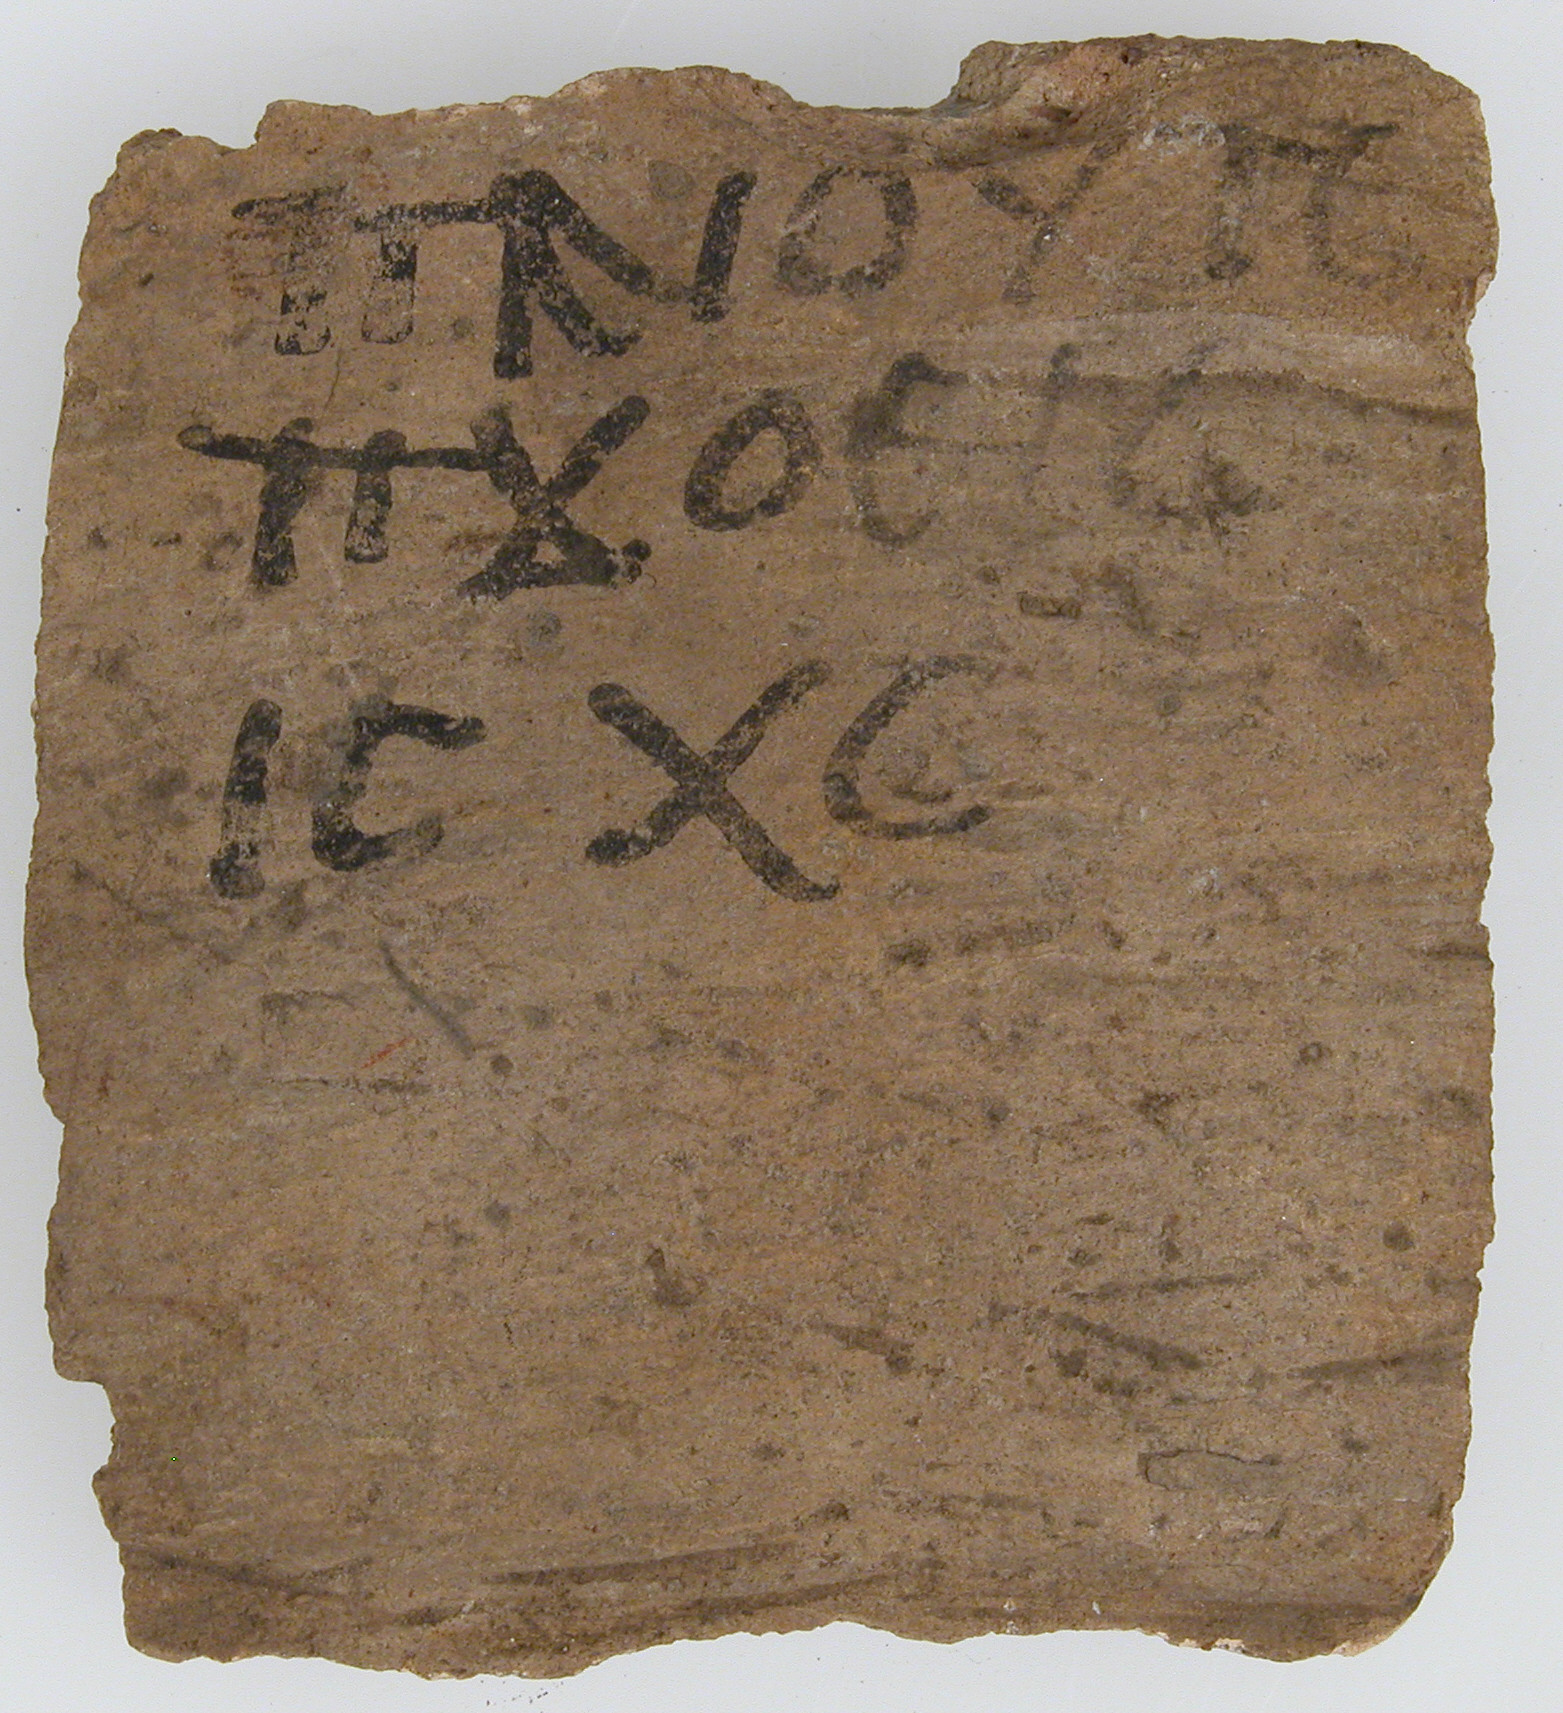 ⲡⲛⲟⲩⲧⲉ
ⲡϫⲟⲉⲓⲥ
ⲓⲥ ⲭⲥ